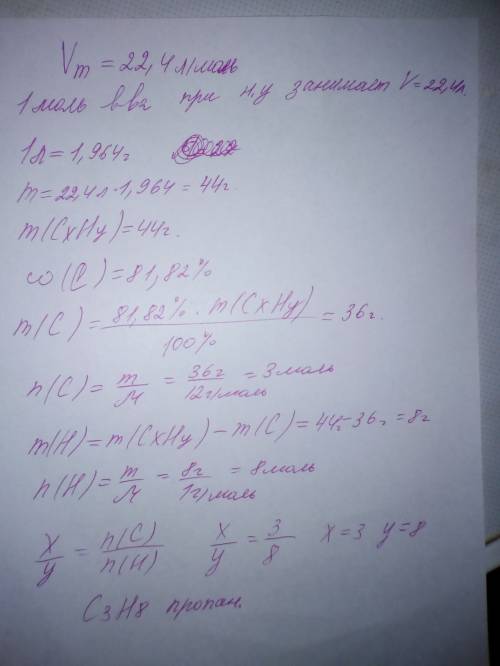 Vm = 22,4 л/моль
1 моль в ва при н.у занимает V=22,4л.
1л = 1,964г
m = 22,4л · 1,964 = 44г.
m(CxHy) = 44г.
ω(C) = 81,82%
m(C) = 81,82% · m(CxHy) / 100% = 36г.
n(C) = m/M = 36г / 12г/моль = 3 моль
m(H) = m(CxHy) – m(C) = 44г – 36г = 8г
n(H) = m/M = 8г / 1г/моль = 8 моль
x/y = n(C)/n(H) x/y = 3/8 x=3 y=8
C3H8 пропан.